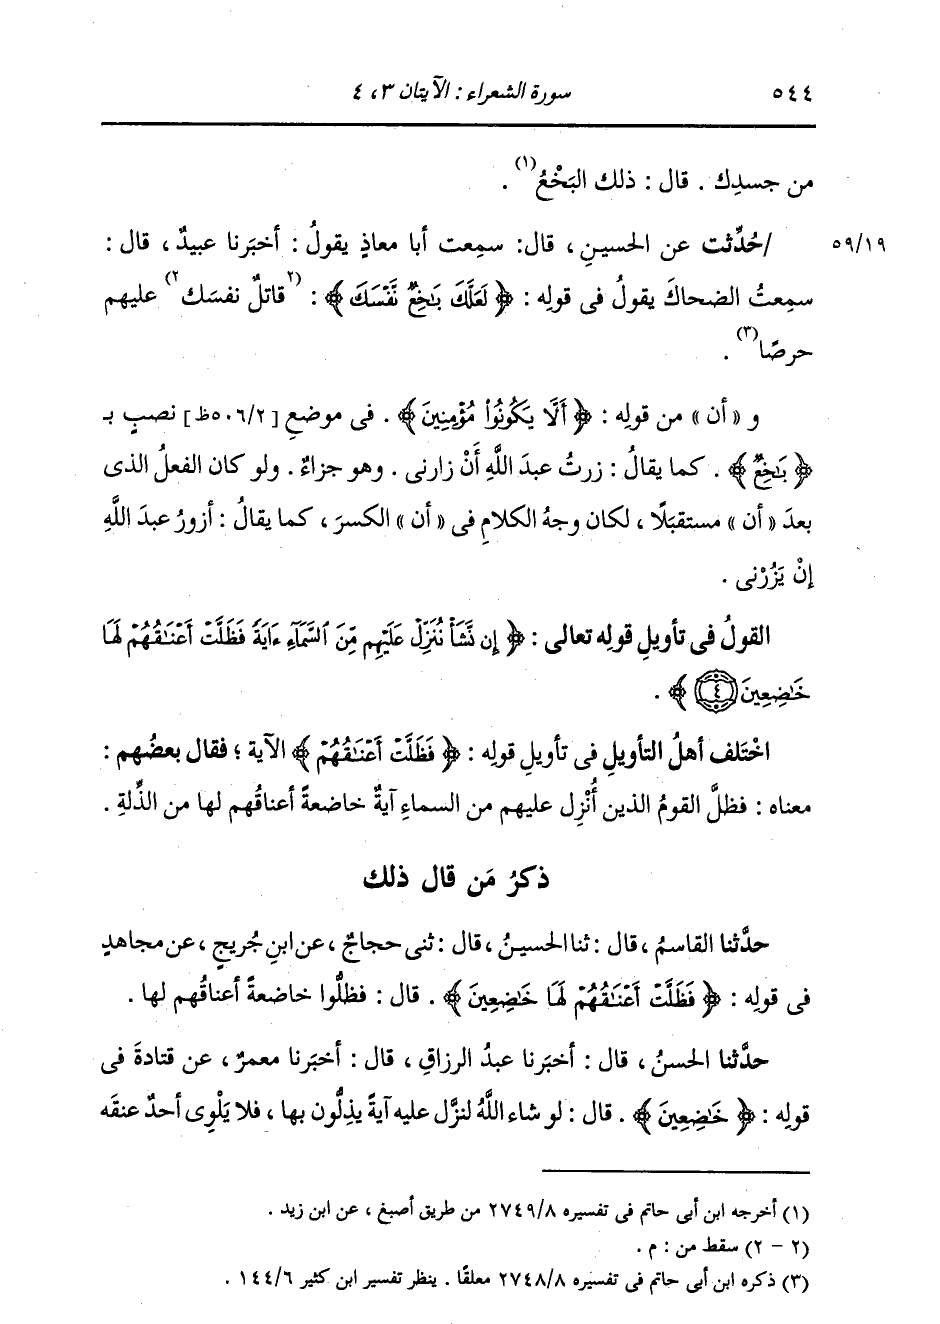 ٥٤٤ سورة الشعراء : الآيتان ٣ ، ٤
من جسدِك . قال : ذلك البَخْعُ(١) .
١٩/٥٩ /حُدِّثت عن الحسينِ ، قال: سمِعت أبا معاذٍ يقولُ : أخبَرنا عبيدٌ ، قال :
سمِعتُ الضحاكَ يقولُ فى قولِه : ﴿ لَعَلَّكَ بَٰخِعٌ نَّفْسَكَ ﴾ : (٢قاتلٌ نفسَك٢) عليهم
حرصًا(٣) .
و « أن » من قولِه : ﴿ أَلَّا يَكُونُوا۟ مُؤْمِنِينَ ﴾ . فى موضعِ [٢/٥٠٦ظ] نصبٍ بـ
﴿ بَٰخِعٌ ﴾ . كما يقالُ : زرتُ عبدَ اللَّهِ أَنْ زارنى . وهو جزاءٌ . ولو كان الفعلُ الذى
بعدَ « أن » مستقبَلًا ، لكان وجهُ الكلامِ فى « أن » الكسرَ ، كما يقالُ : أزورُ عبدَ اللَّهِ
إنْ يَزُرْنى .
القولُ فى تأويلِ قولِه تعالى : ﴿ إِن نَّشَأْ نُنَزِّلْ عَلَيْهِم مِّنَ ٱلسَّمَآءِ ءَايَةً فَظَلَّتْ أَعْنَٰقُهُمْ لَهَا
خَٰضِعِينَ ٤ ﴾ .
اخْتَلف أهلُ التأويلِ فى تأويلِ قولِه : ﴿ فَظَلَّتْ أَعْنَٰقُهُمْ ﴾ الآية ؛ فقال بعضُهم :
معناه : فظلَّ القومُ الذين أُنْزِل عليهم من السماءِ آيةٌ خاضعةً أعناقُهم لها من الذِّلةِ .
ذكرُ مَن قال ذلك
حدَّثنا القاسمُ ، قال : ثنا الحسينُ ، قال : ثنى حجاجٌ ، عن ابنِ جُريجٍ ، عن مجاهدٍ
فى قولِه : ﴿ فَظَلَّتْ أَعْنَٰقُهُمْ لَهَا خَٰضِعِينَ ﴾ . قال : فظلُّوا خاضعةً أعناقُهم لها .
حدَّثنا الحسنُ ، قال : أخبَرنا عبدُ الرزاقِ ، قال : أخبَرنا معمرٌ ، عن قتادةَ فى
قولِه : ﴿ خَٰضِعِينَ ﴾ . قال : لو شاء اللَّهُ لنزَّل عليه آيةً يذِلُّون بها ، فلا يَلْوِى أحدٌ عنقَه
(١) أخرجه ابن أبى حاتم فى تفسيره ٨/٢٧٤٩ من طريق أصبغ ، عن ابن زيد .
(٢ - ٢) سقط من : م .
(٣) ذكره ابن أبى حاتم فى تفسيره ٨/٢٧٤٨ معلقًا . ينظر تفسير ابن كثير ٦/١٤٤ .